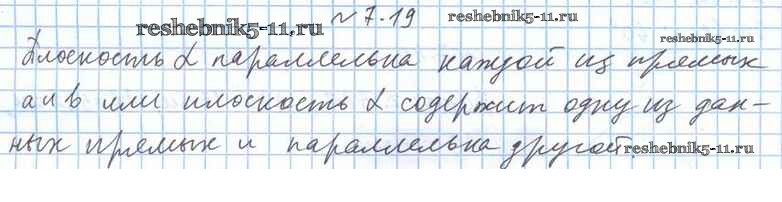 reshebnik5-11.ru № 7.19 reshebnik5-11.ru reshebnik5-11.ru
Плоскость α параллельна каждой из прямых
a и b или плоскость α содержит одну из дан-
ных прямых и параллельна другой. reshebnik5-11.ru